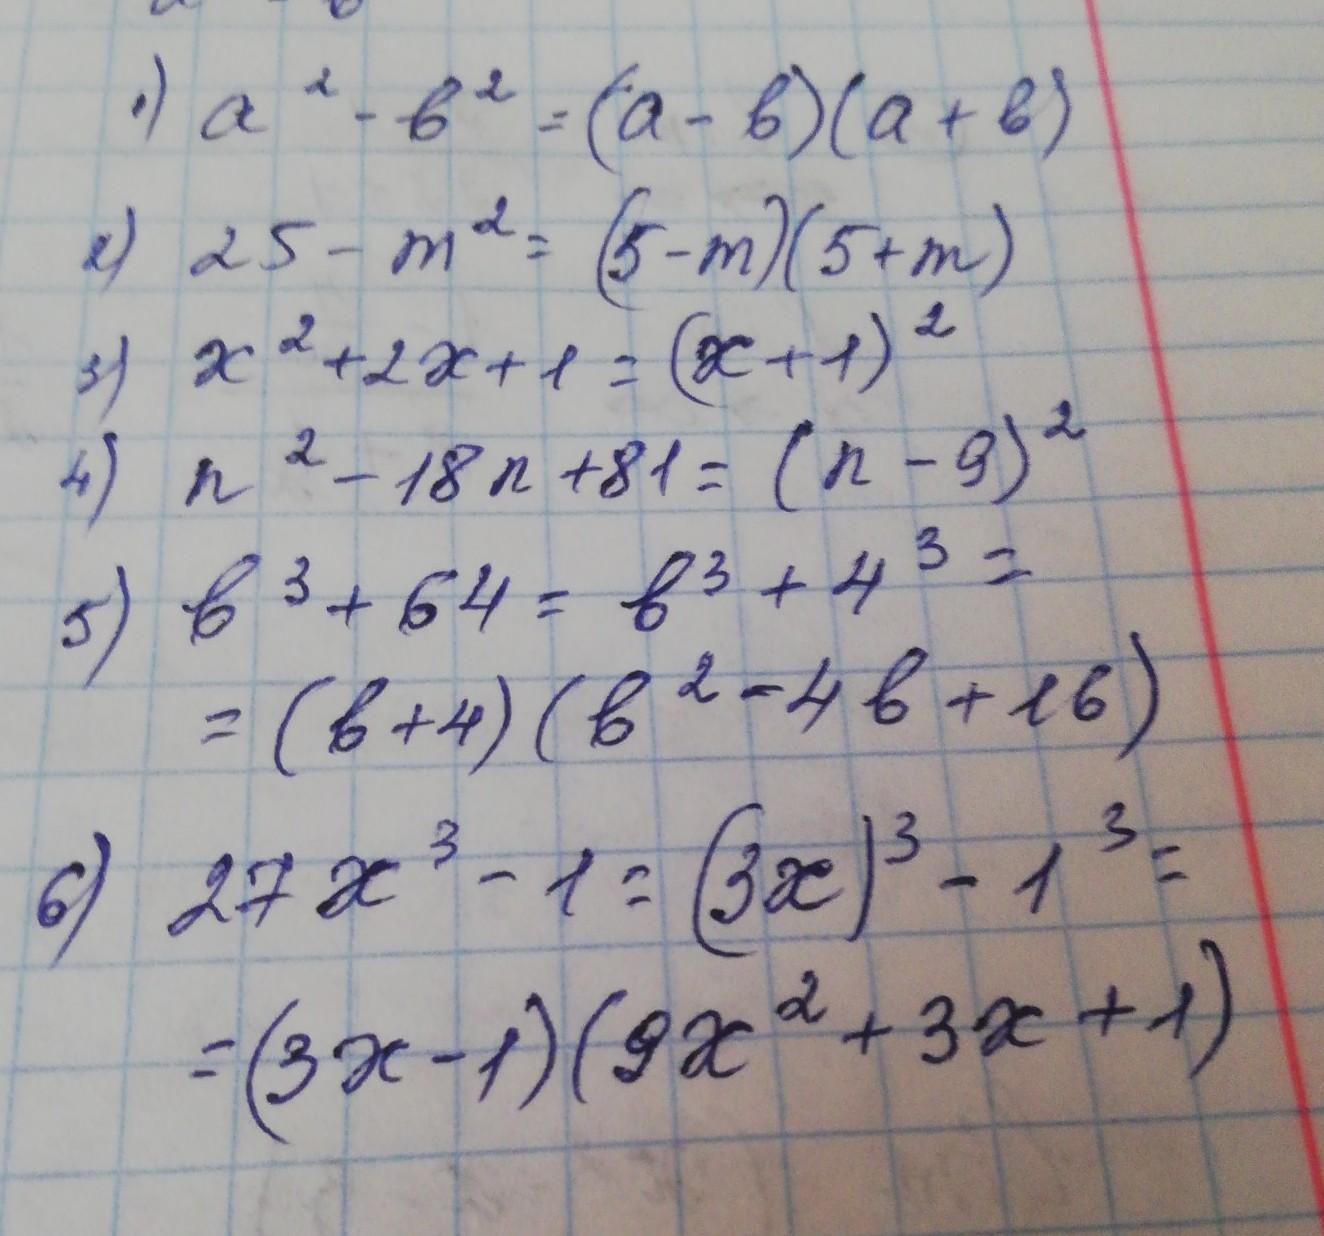 1) a² - b² = (a - b)(a + b)
2) 25 - m² = (5 - m)(5 + m)
3) x² + 2x + 1 = (x + 1)²
4) n² - 18n + 81 = (n - 9)²
5) b³ + 64 = b³ + 4³ =
= (b + 4)(b² - 4b + 16)
6) 27x³ - 1 = (3x)³ - 1³ =
= (3x - 1)(9x² + 3x + 1)